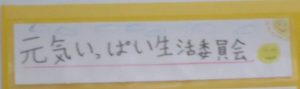 元気いっぱい生活委員会